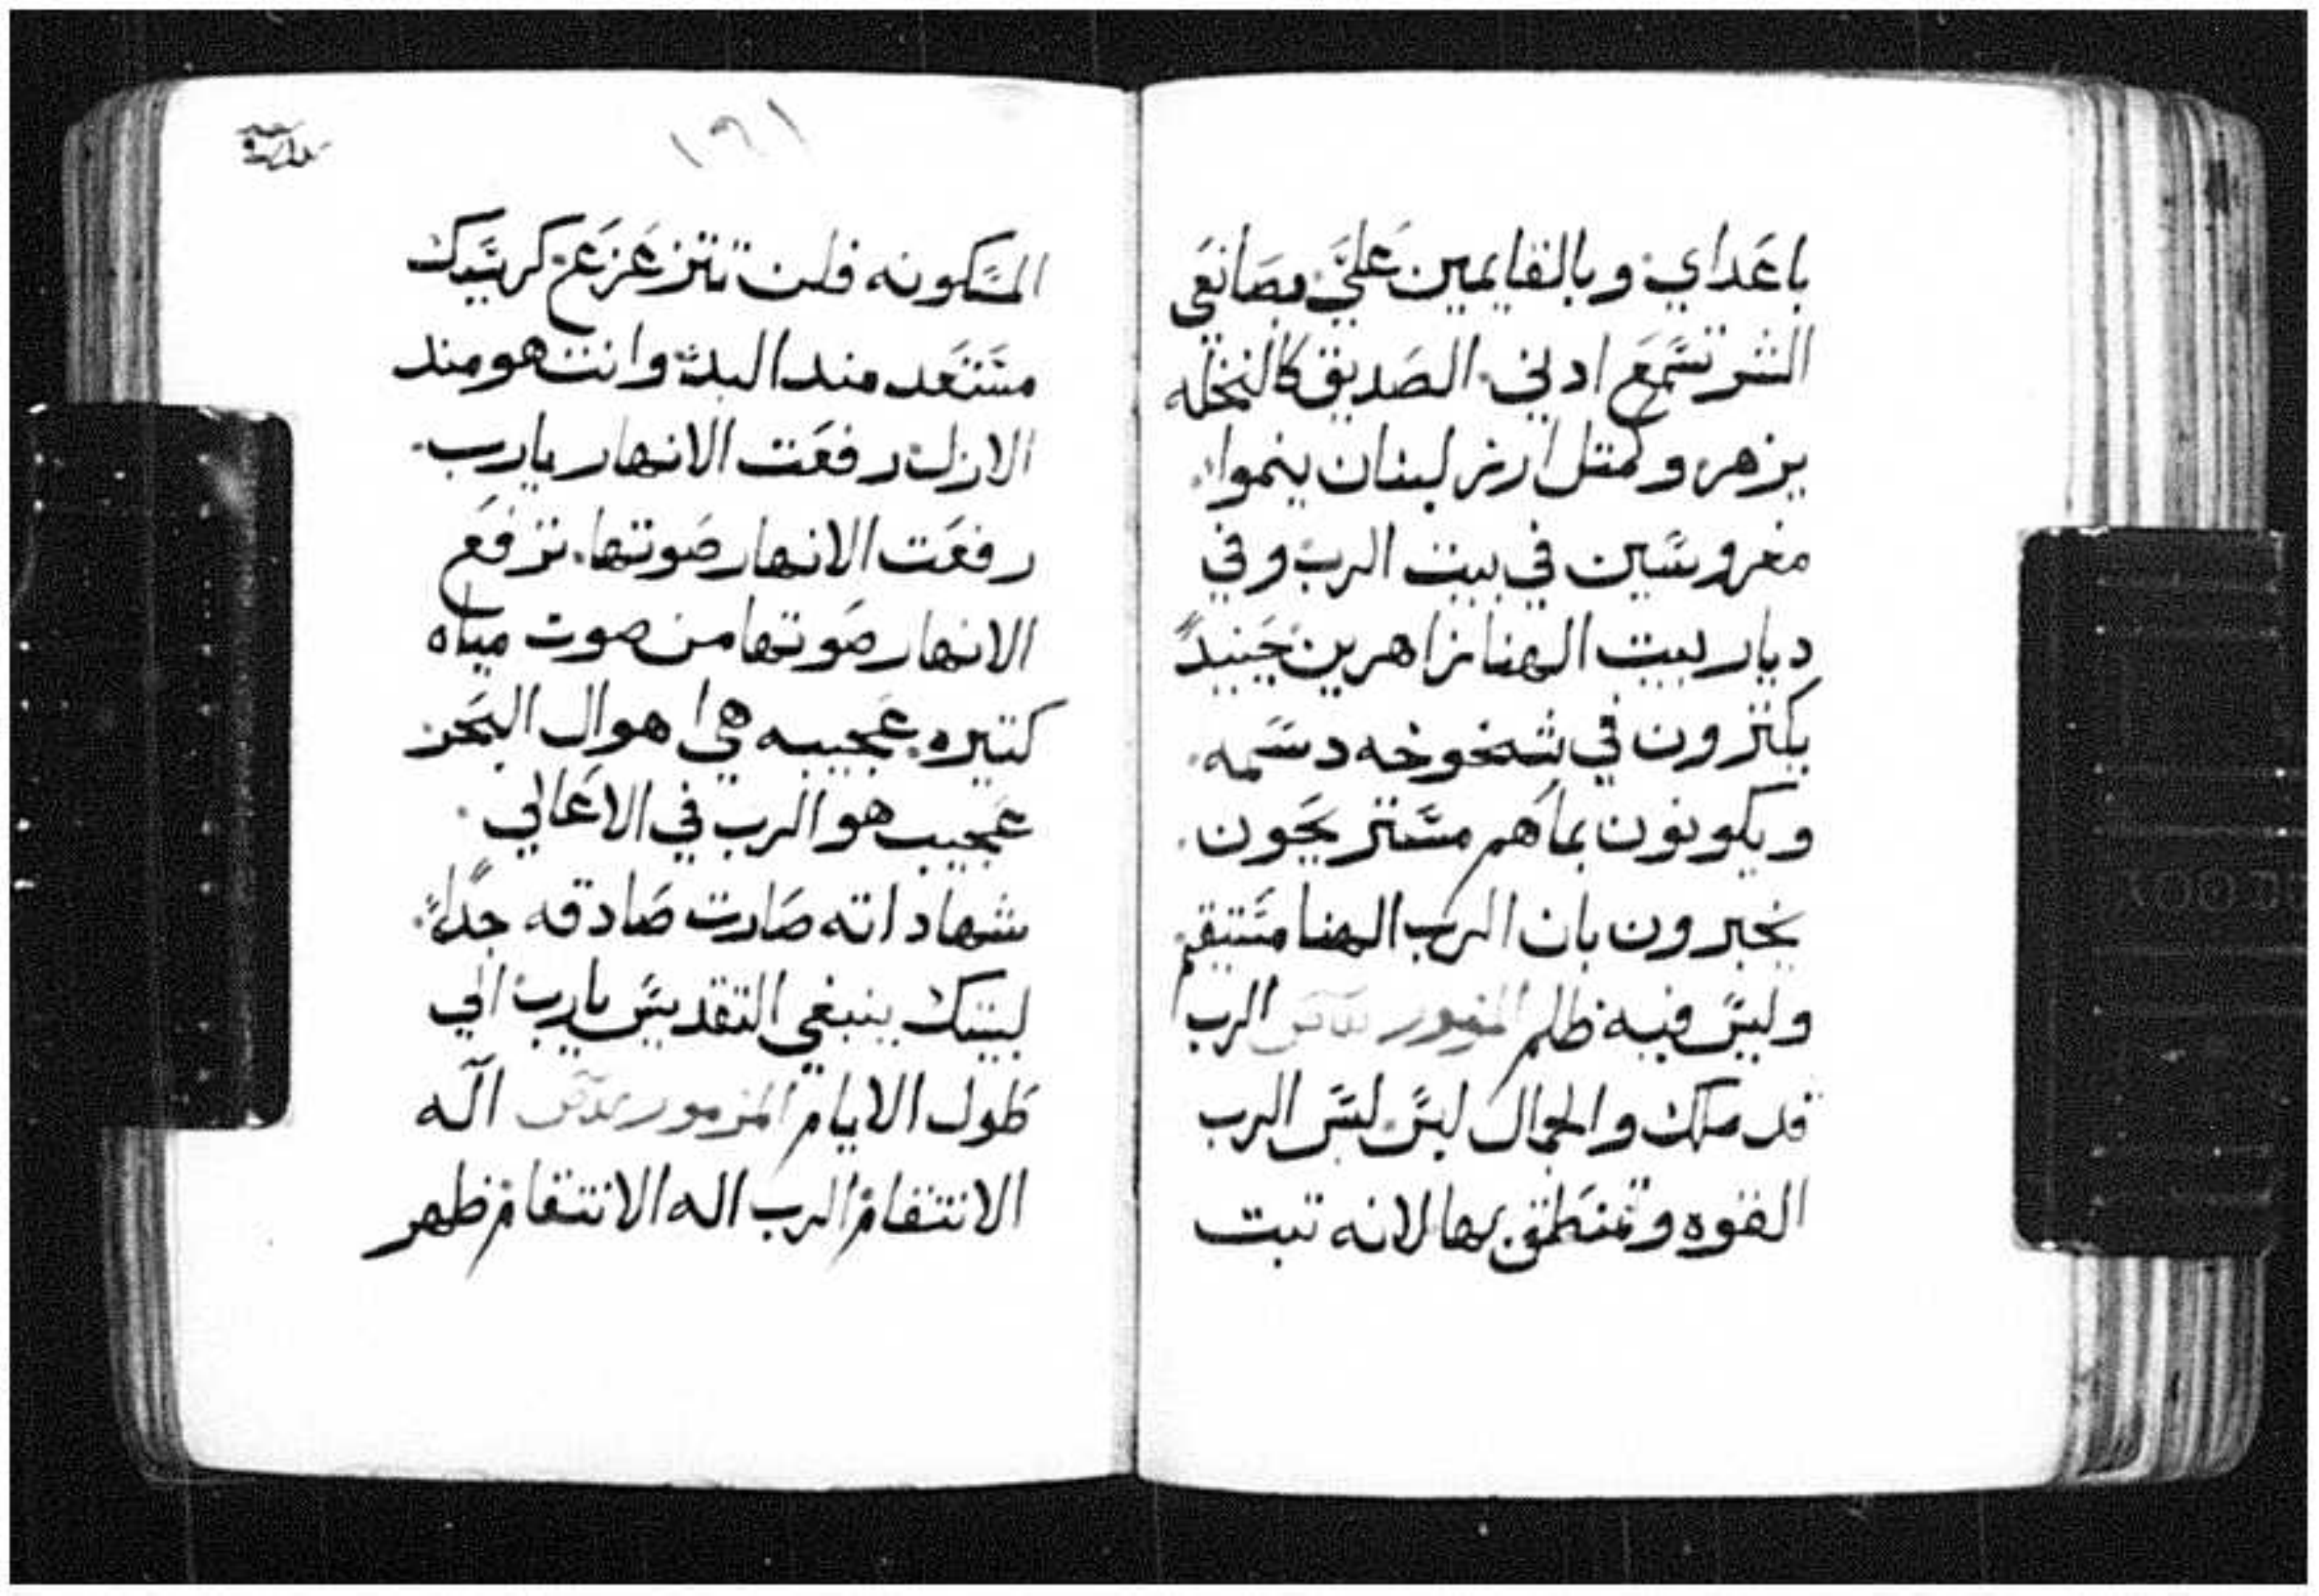 باعداي وبالقايمين علي وبصانعي
الشر تسمع ادني الصديق كالنخله
يزهر وكمثل ارز لبنان ينموا
مغروسين في بيت الرب وفي
ديار بيت الهنا زاهرين حينيدً
يكثرون في شيخوخه دسمه
ويكونون بماهم مستريحون
يخبرون بان الرب الهنا مستقيم
وليس فيه ظلم المزمور الرب
قد ملك والجمال لبس لبس الرب
القوه وتمنطق بها لانه تبت
١٩١
المسكونه فلن تتزعزع كرسيك
مستعد مند البدء وانت هو مند
الازل رفعت الانهار يارب
رفعت الانهار صوتها ترفع
الانهار صوتها من صوت مياه
كتيره عجيبه هي اهوال البحر
عجيب هو الرب في الاعالي
شهاداته صارت صادقه جداً
لبيتك ينبغي التقديس يارب الي
طول الايام المزمور اله
الانتقام الرب اله الانتقام ظهر